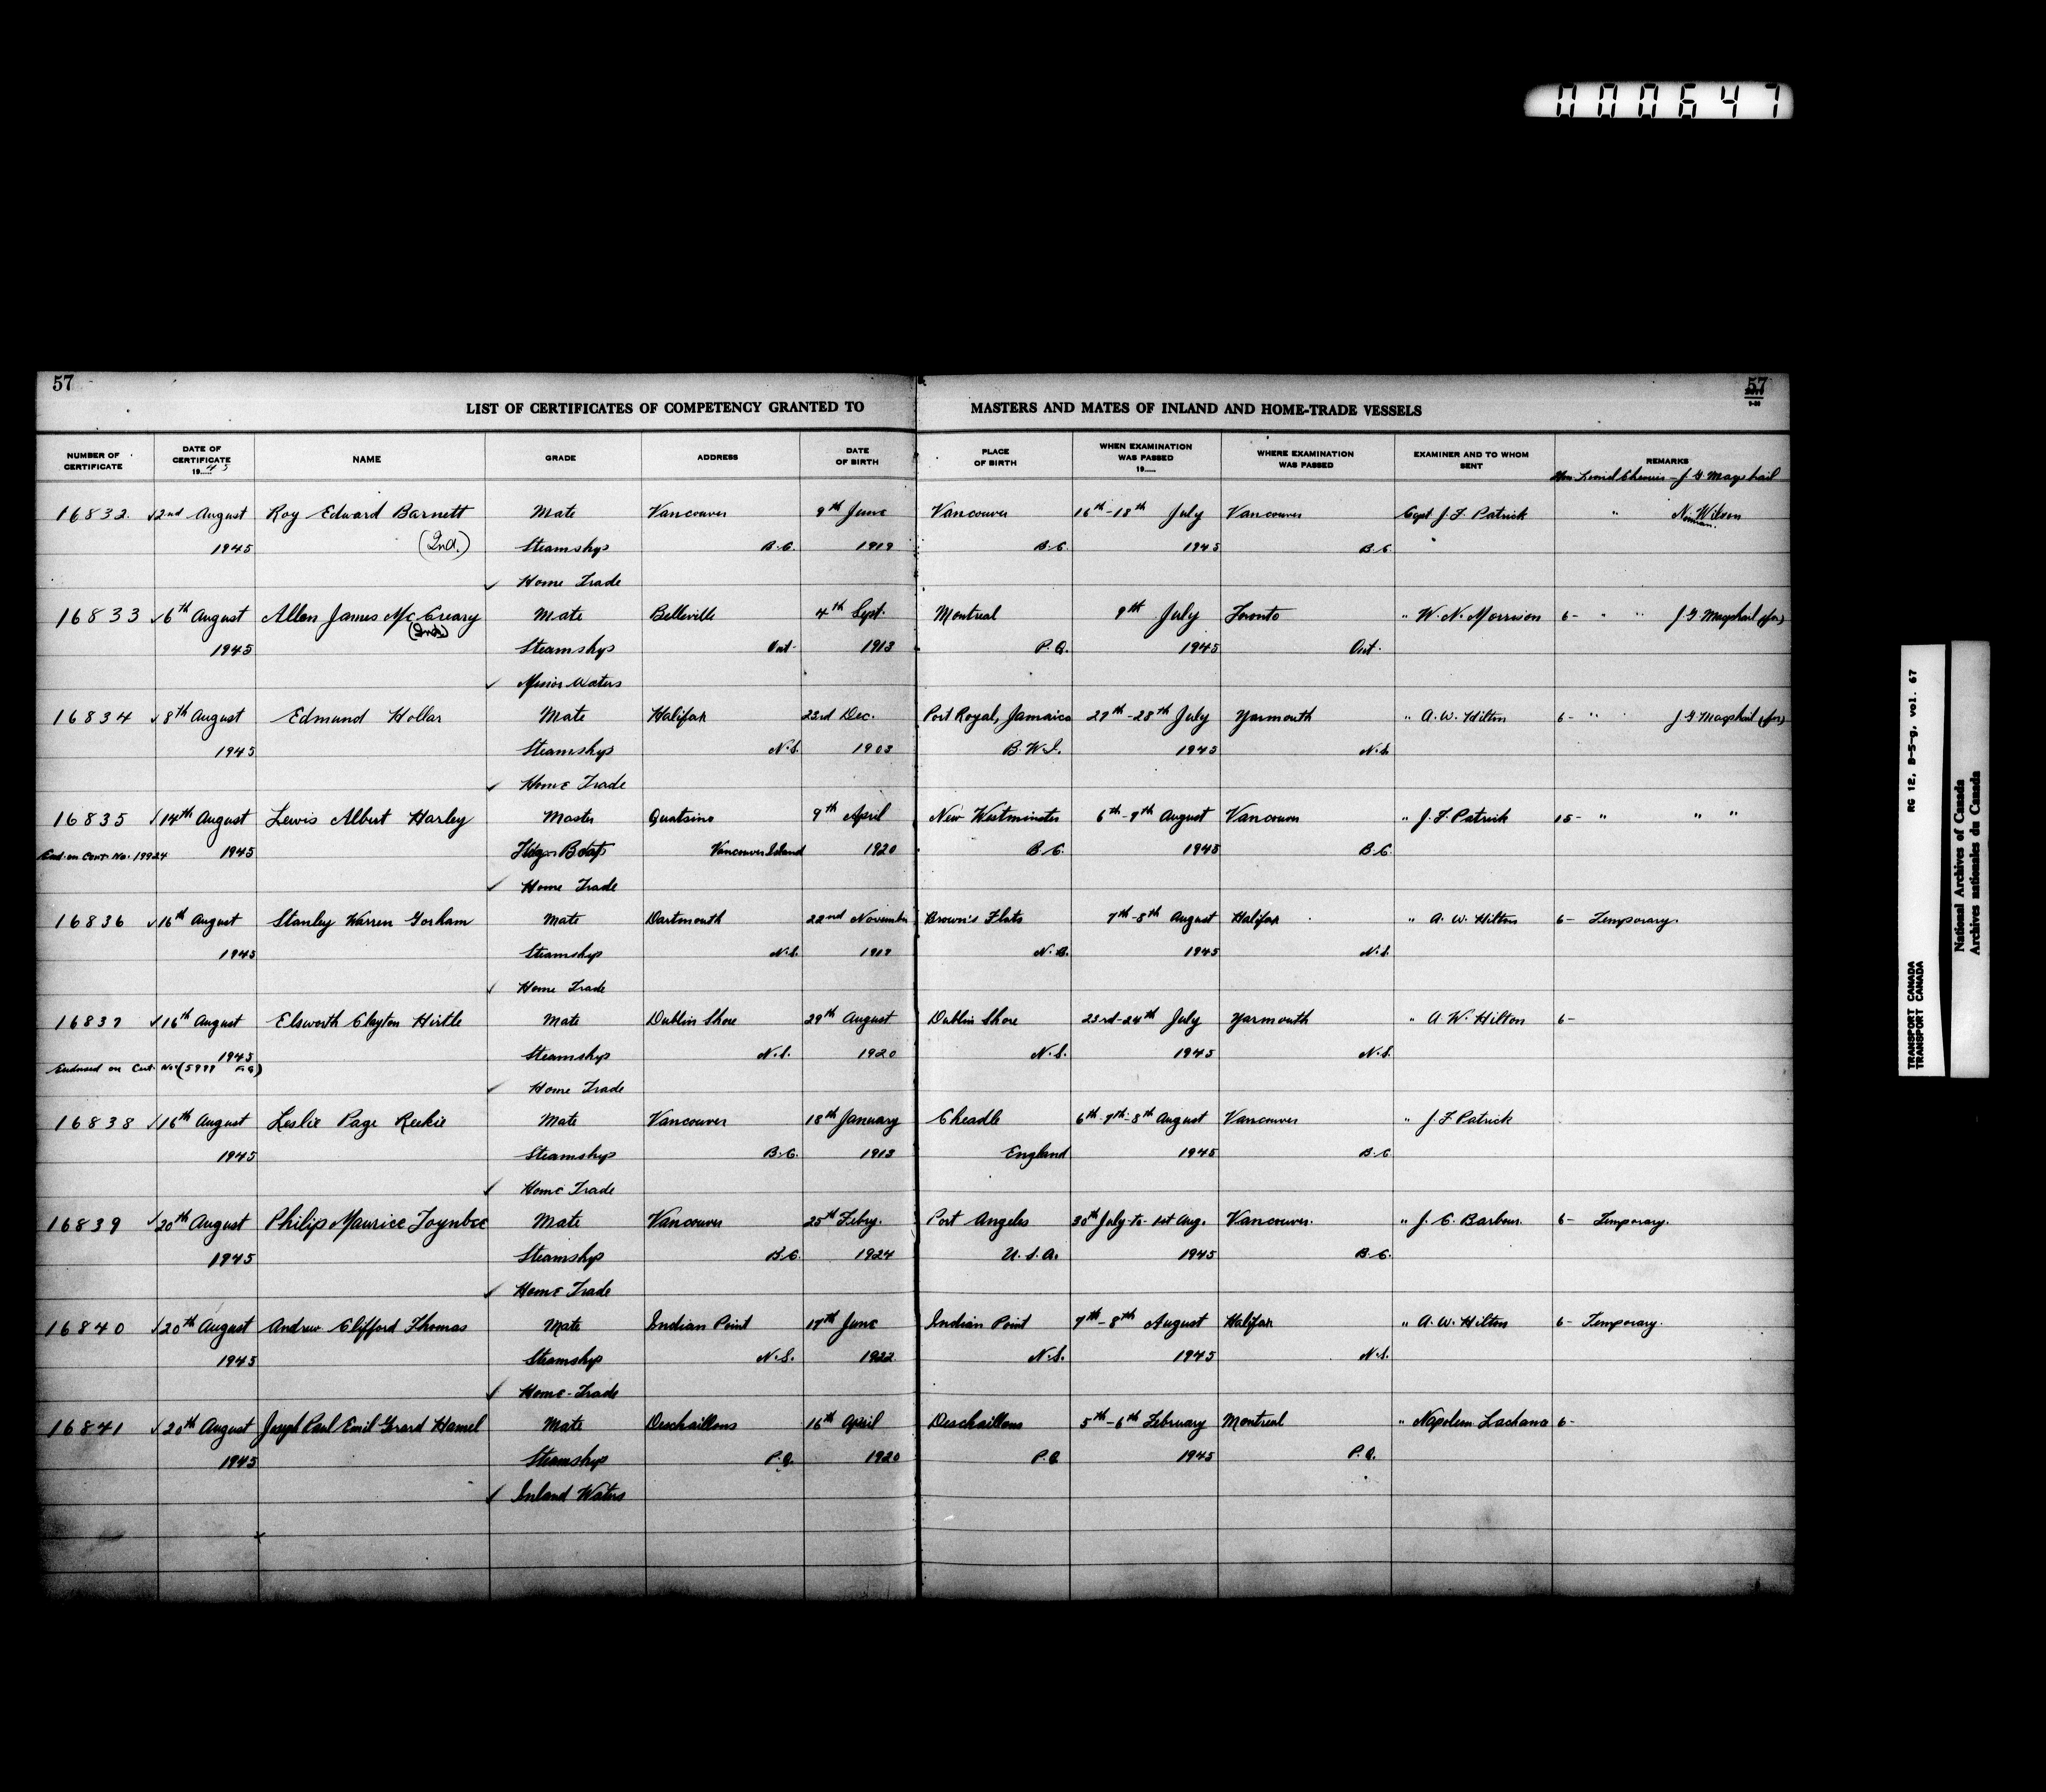 000647
57
57
LIST OF CERTIFICATES OF COMPETENCY GRANTED TO MASTERS AND MATES OF INLAND AND HOME-TRADE VESSELS
NUMBER OF CERTIFICATE DATE OF CERTIFICATE 1945 NAME GRADE ADDRESS DATE OF BIRTH PLACE OF BIRTH WHEN EXAMINATION WAS PASSED 19..... WHERE EXAMINATION WAS PASSED EXAMINER AND TO WHOM SENT REMARKS
Hon Lionel Chevrier - J G Macphail
16832. 2nd August Roy Edward Barnett Mate Vancouver 9th June Vancouver 16th-18th July Vancouver Capt J. F. Patrick " N. Wilson
Norman.
1945 (Ind.) Steamships B.C. 1919 B.C. 1945 B.C.
✓ Home Trade
16833 ✓6th August Allen James McCreary Mate Belleville 4th Sept. Montreal 9th July Toronto " W. N. Morrison 6- " " J G Macphail (for)
1945 Steamships Ont. 1913 P.Q. 1945 Ont.
✓ Minor Waters
16834 ✓8th August Edmund Hollar Mate Halifax 23rd Dec. Port Royal, Jamaica 27th-28th July Yarmouth " A. W. Hilton 6- " J G Macphail (for)
1945 Steamships N.S. 1903 B.W.I. 1945 N.S.
✓ Home Trade
16835 ✓14th August Lewis Albert Harley Master Quatsino 9th April New Westminster 6th-9th August Vancouver " J. F. Patrick 15- " " "
End. on Cert. No. 19924 1945 Vancouver Island 1920 B.C. 1945 B.C.
✓ Home Trade
16836 ✓16th August Stanley Warren Gorham Mate Dartmouth 22nd November Brown's Flats 7th-8th August Halifax " A. W. Hilton 6- Temporary.
1945 Steamship N.S. 1919 N.B. 1945 N.S.
✓ Home Trade
16837 ✓16th August Elsworth Clayton Hirtle Mate Dublin Shore 29th August Dublin Shore 23rd-24th July Yarmouth " A W. Hilton 6-
1945 Steamship N.S. 1920 N.S. 1945 N.S.
Endorsed on Cert. No. (5999 F.G)
✓ Home Trade
16838 ✓16th August Leslie Page Reekie Mate Vancouver 18th January Cheadle 6th-7th-8th August Vancouver " J. F Patrick
1945 Steamship B.C. 1913 England 1945 B.C
✓ Home Trade
16839 ✓20th August Philip Maurice Toynbee Mate Vancouver 25th Feby. Port Angeles 30th July to 1st Aug. Vancouver. " J. C. Barbour. 6- Temporary.
1945 Steamship B.C. 1924 U.S.A. 1945 B.C.
✓ Home Trade
16840 ✓20th August Andrew Clifford Thomas Mate Indian Point 17th June Indian Point 7th-8th August Halifax " A. W. Hilton 6- Temporary.
1945 Steamship N.S. 1922 N.S. 1945 N.S.
✓ Home-Trade
16841 ✓20th August Joseph Paul Emil Gerard Hamel Mate Deschaillons 16th April Deschaillons 5th-6th February Montreal " Napoleon Lachance 6-
1945 Steamship P.Q. 1920 P.Q. 1945 P.Q.
✓ Inland Waters
TRANSPORT CANADA RG 12, B-5-g, vol. 67
TRANSPORT CANADA
National Archives of Canada
Archives nationales du Canada